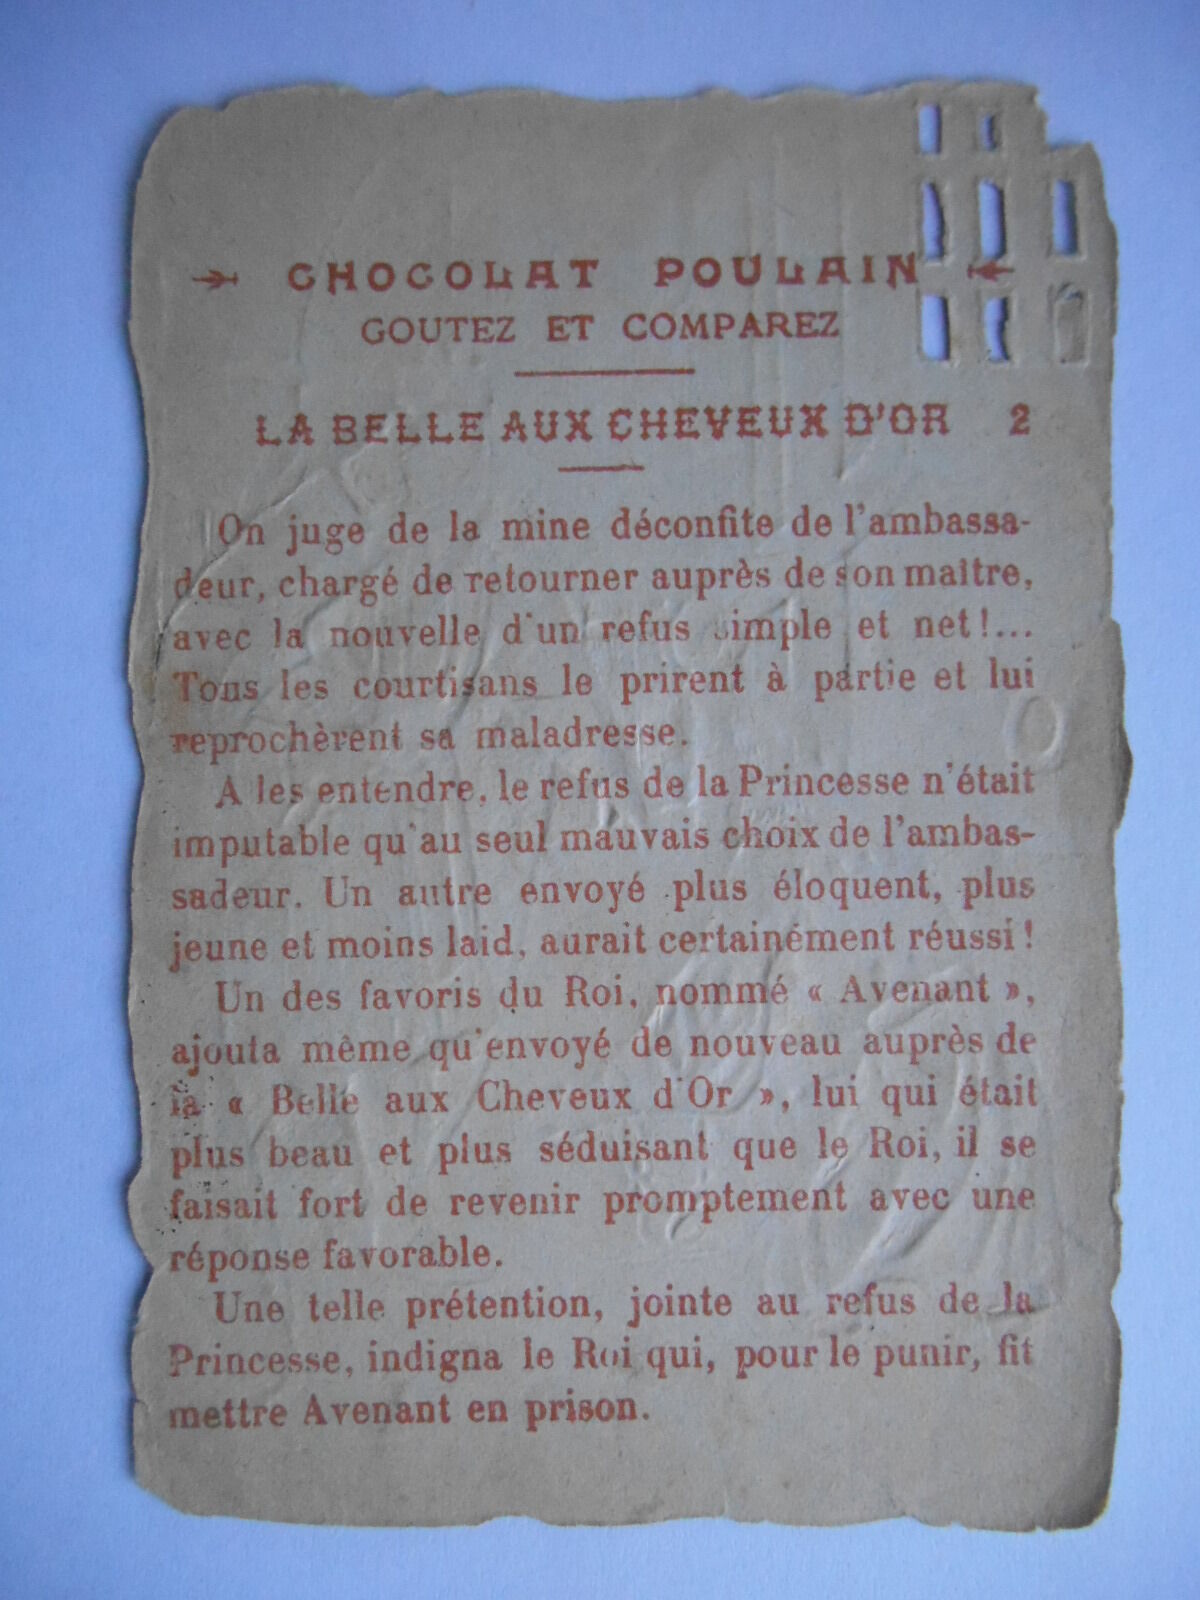 CHOCOLAT POULAIN
GOUTEZ ET COMPAREZ
LA BELLE AUX CHEVEUX D'OR 2
On juge de la mine déconfite de l'ambassa-
deur, chargé de retourner auprès de son maître,
avec la nouvelle d'un refus simple et net!...
Tous les courtisans le prirent à partie et lui
reprochèrent sa maladresse.
A les entendre, le refus de la Princesse n'était
imputable qu'au seul mauvais choix de l'ambas-
sadeur. Un autre envoyé plus éloquent, plus
jeune et moins laid, aurait certainement réussi!
Un des favoris du Roi, nommé « Avenant »,
ajouta même qu'envoyé de nouveau auprès de
la « Belle aux Cheveux d'Or », lui qui était
plus beau et plus séduisant que le Roi, il se
faisait fort de revenir promptement avec une
réponse favorable.
Une telle prétention, jointe au refus de la
Princesse, indigna le Roi qui, pour le punir, fit
mettre Avenant en prison.